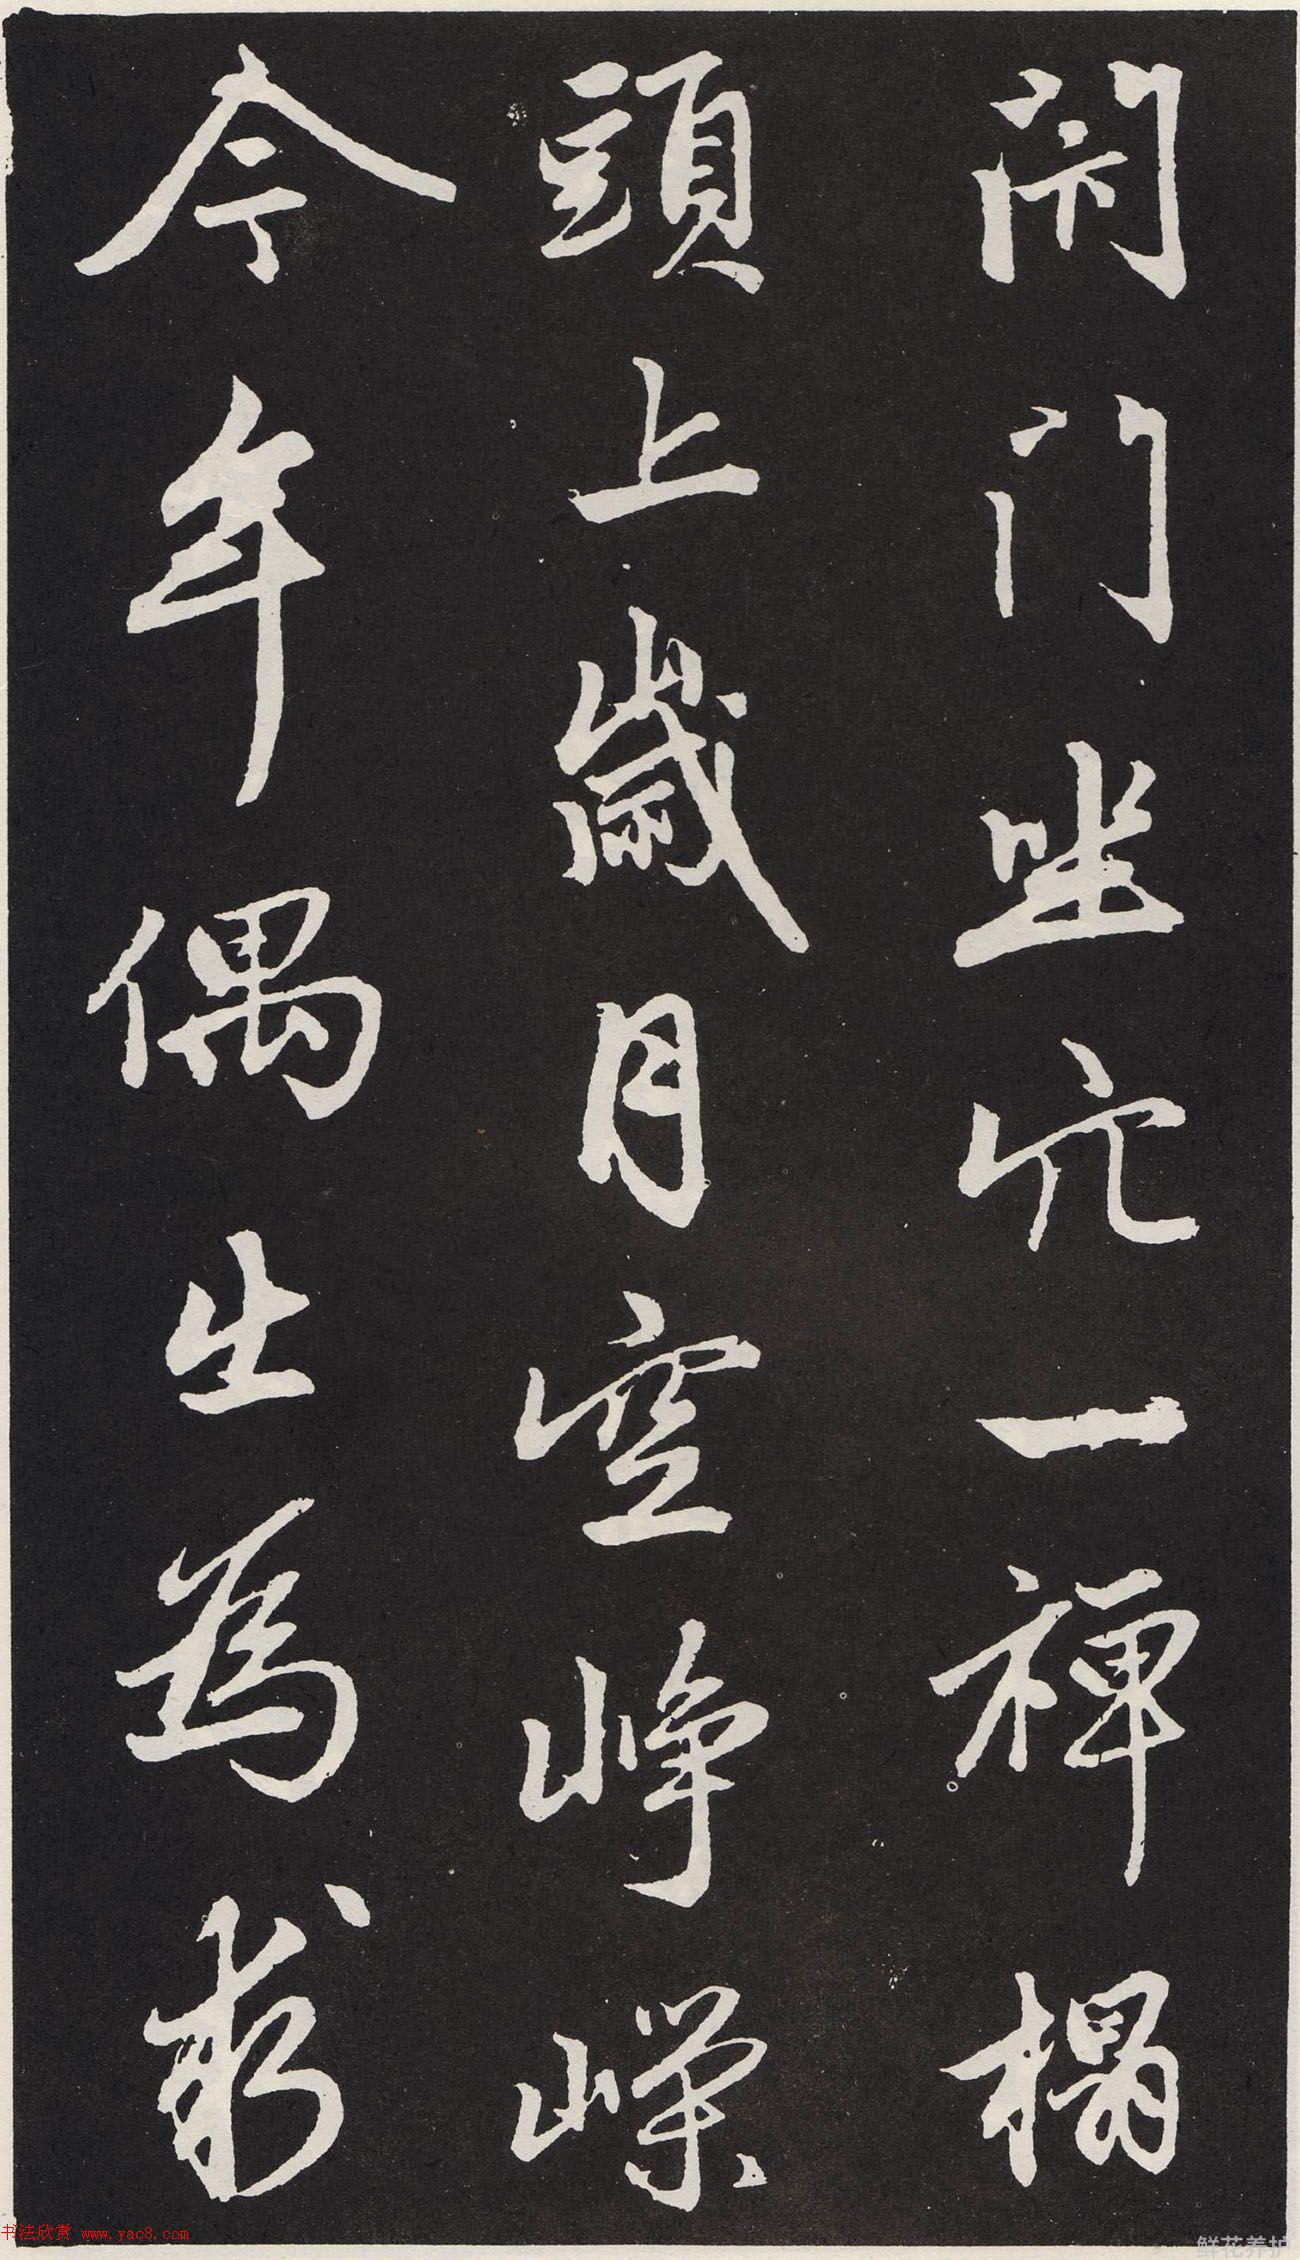 閉門坐穴一禪榻
頭上歲月空崢嶸
今年偶出為求
书法欣赏 www.yac8.com
鲜花养护